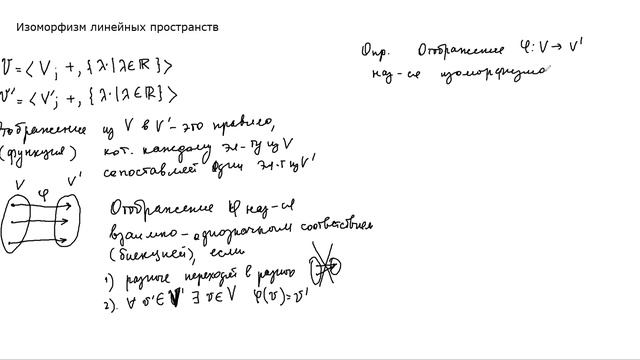 Изоморфизм линейных пространств
V = < V; +, {λ·|λ∈ℝ} >
V' = < V'; +, {λ·|λ∈ℝ} >
Отображение из V в V' – это правило,
(функция) кот. каждому эл-ту из V
сопоставляет один эл-т из V'
V φ V'
Отображение φ наз-ся
взаимно-однозначным соответствием
(биекцией), если
1) разные переходят в разные
2). ∀ v'∈V' ∃ v∈V φ(v)=v'
Опр. Отображение φ: V → V'
наз-ся изоморфизмо